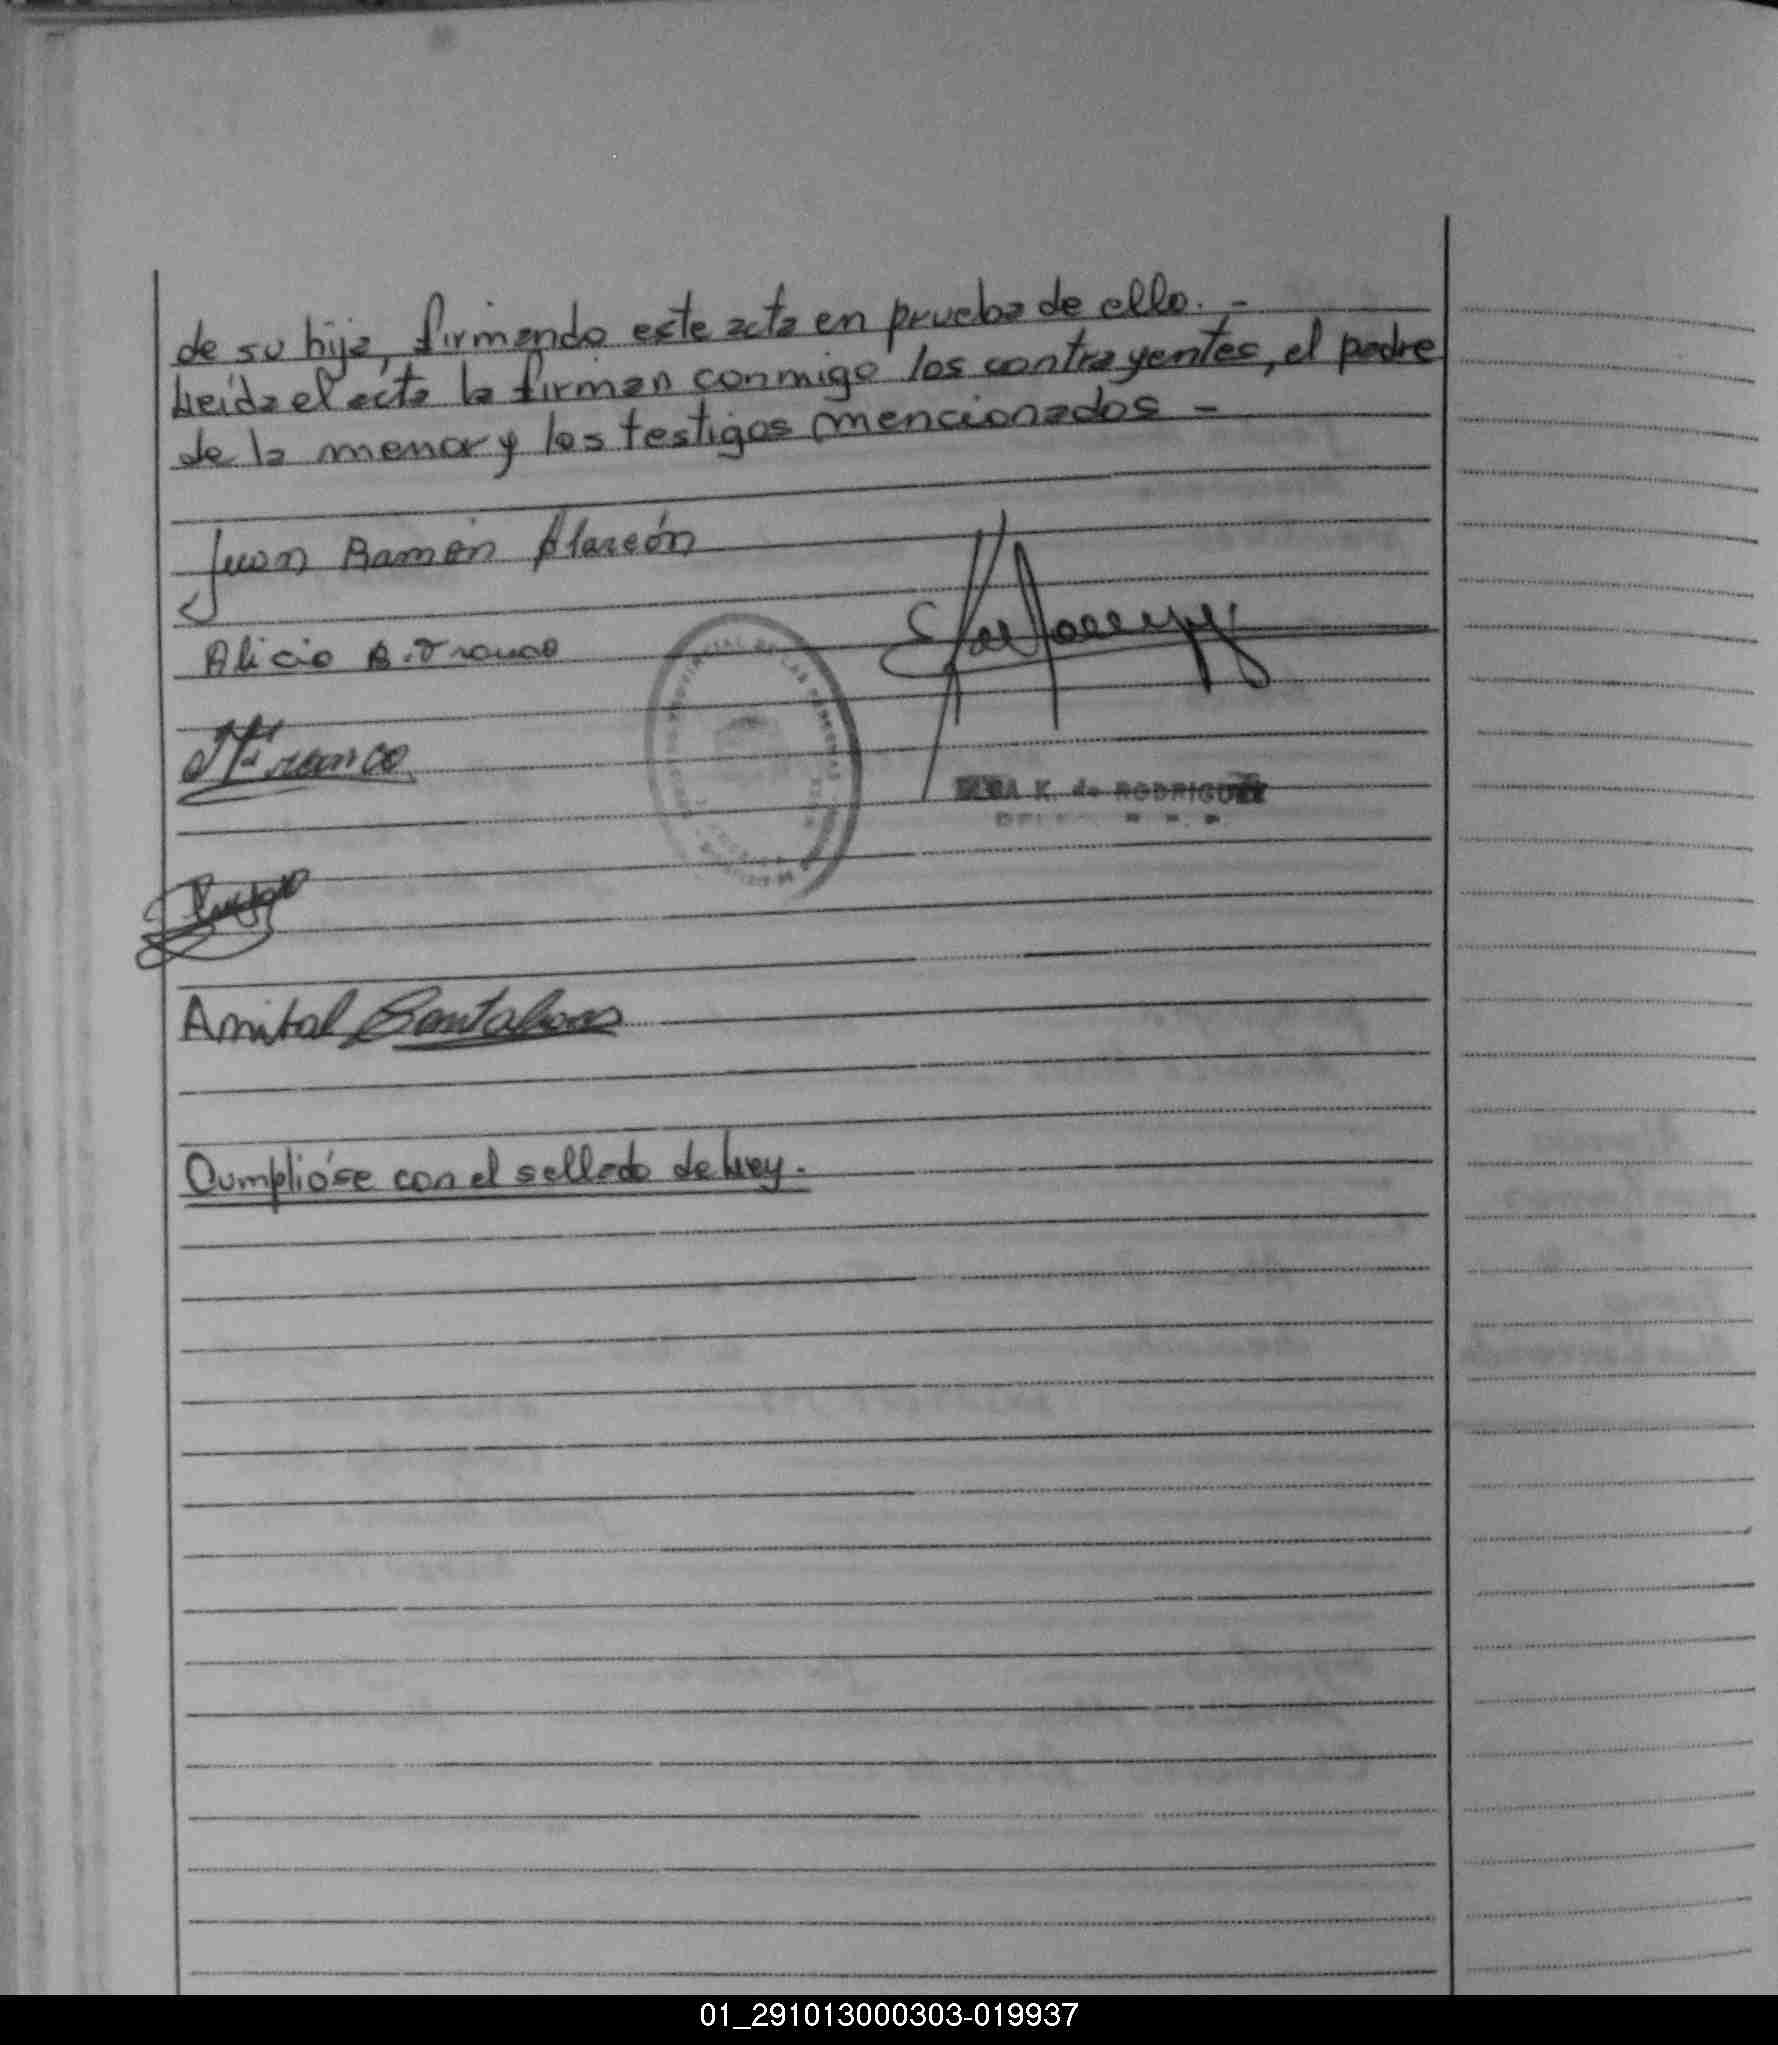 de su hija, firmando este acta en prueba de ello. -
Leída el acta la firman conmigo los contrayentes, el padre
de la menor y los testigos mencionados -
Juan Ramón Alarcón
Alicia B. Franco
Franco
PROVINCIAL DE LAS PERSONAS
K. de RODRIGUEZ
Anibal
Cumplióse con el sellado de Ley.
01_291013000303-019937